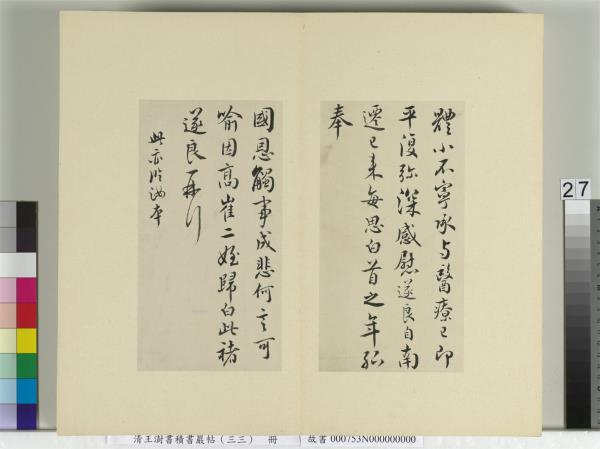 體小不寧承與醫療已即
平復弥深感慰遂良自南
遷已來每思白首之年孤
奉
國恩觸事成悲何言可
喻因高崔二姪歸白此褚
遂良再行
此亦臨海本
27
清王澍書積書巖帖(三三) 冊 故書 000753N000000000